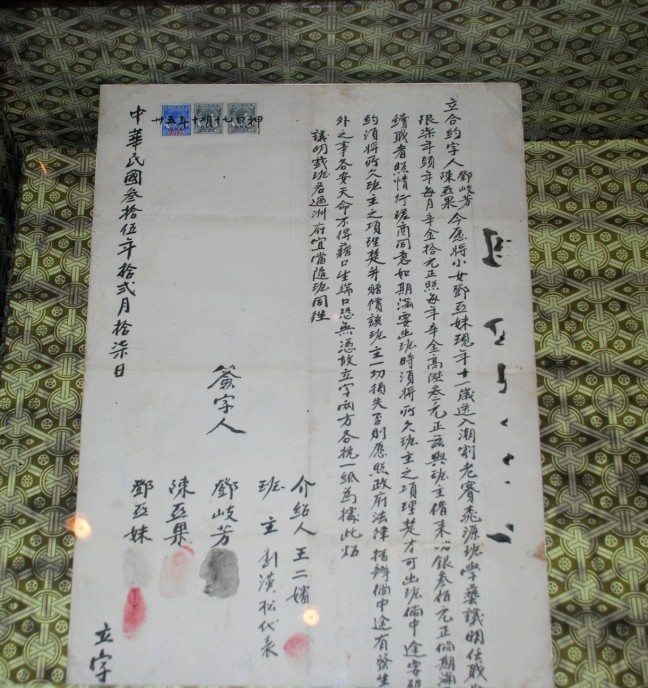 立合約字人鄧岐芳陳亞果今愿將小女鄧亞妹現年十一歲送入潮劇老賽桃源班學藝議明任職
限柒年頭年每月辛金拾元正照每年辛金高陞叁元正茲與班主借來銀叁佰元正倘期滿
續職者照情行環商同意如期滿要出班時須將所欠班主之項理楚方可出班倘中途要
約須將所欠班主之項理楚并賠償該班主一切損失否則愿照政府法律措辦倘中途有發生
外之事各安天命不得藉口生端口恐無憑故立字兩方各執一紙為據此炤
議明戲班若過洲府宜當隨班同往
簽字人
介紹人王二嬸
班主劉漢松代表
鄧岐芳
陳亞果
鄧亞妹
中華民國叁拾伍年拾弍月拾柒日
立字
卅五年十月七日押